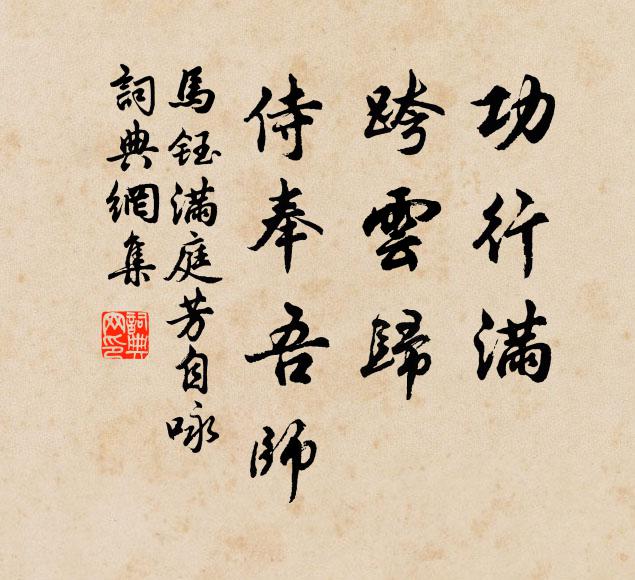 功行滿
跨雲歸
侍奉吾師
馬鈺滿庭芳自咏
詞典網集
詞典網印